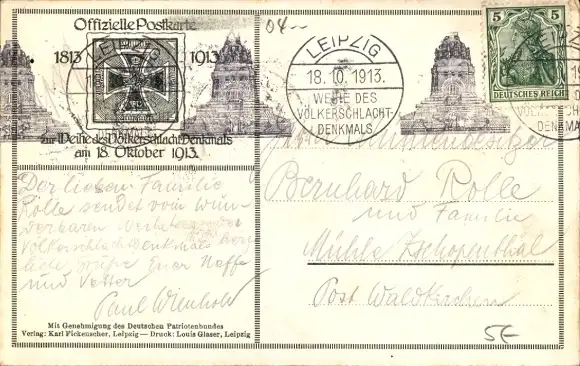 Offizielle Postkarte
1813 1913
zur Weihe des Völkerschlacht-Denkmals
am 18. Oktober 1913.
04
LEIPZIG
18.10.1913.
WEIHE DES
VÖLKERSCHLACHT-
DENKMALS
5 5
DEUTSCHES REICH
VÖLKERSCHLACHT-
DENKMALS
Der lieben Familie
Rolle sendet vom wun-
derbaren
Völkerschlachtdenkmal herz-
liche Grüße Euer Neffe
und Vetter
Paul
Mit Genehmigung des Deutschen Patriotenbundes
Verlag: Karl Fickenscher, Leipzig — Druck: Louis Glaser, Leipzig
Bernhard Rolle
und Familie
Mühle Zschopenthal
Post Waldkirchen
5E